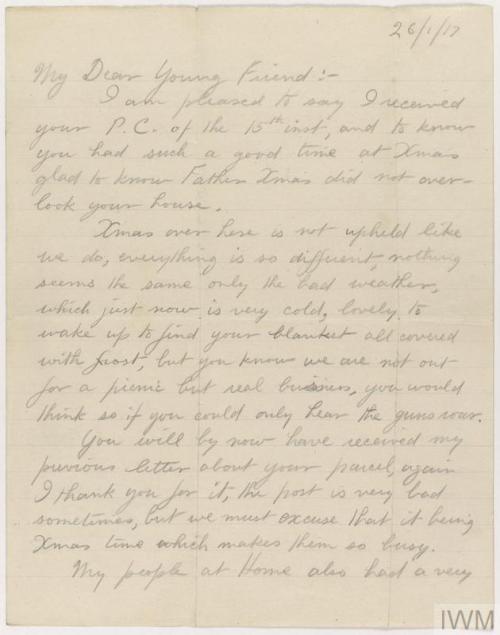 26/1/17
My Dear Young Friend:-
I am pleased to say I received
your P.C. of the 15th inst, and to know
you had such a good time at Xmas
glad to know Father Xmas did not over-
look your house.
Xmas over here is not upheld like
we do, everything is so different, nothing
seems the same only the bad weather,
which just now is very cold, lovely to
wake up to find your blanket all covered
with frost, but you know we are not out
for a picnic but real business, you would
think so if you could only hear the guns roar.
You will by now have received my
previous letter about your parcel, again
I thank you for it, the post is very bad
sometimes, but we must excuse that it being
Xmas time which makes them so busy.
My people at Home also had a very
IWM